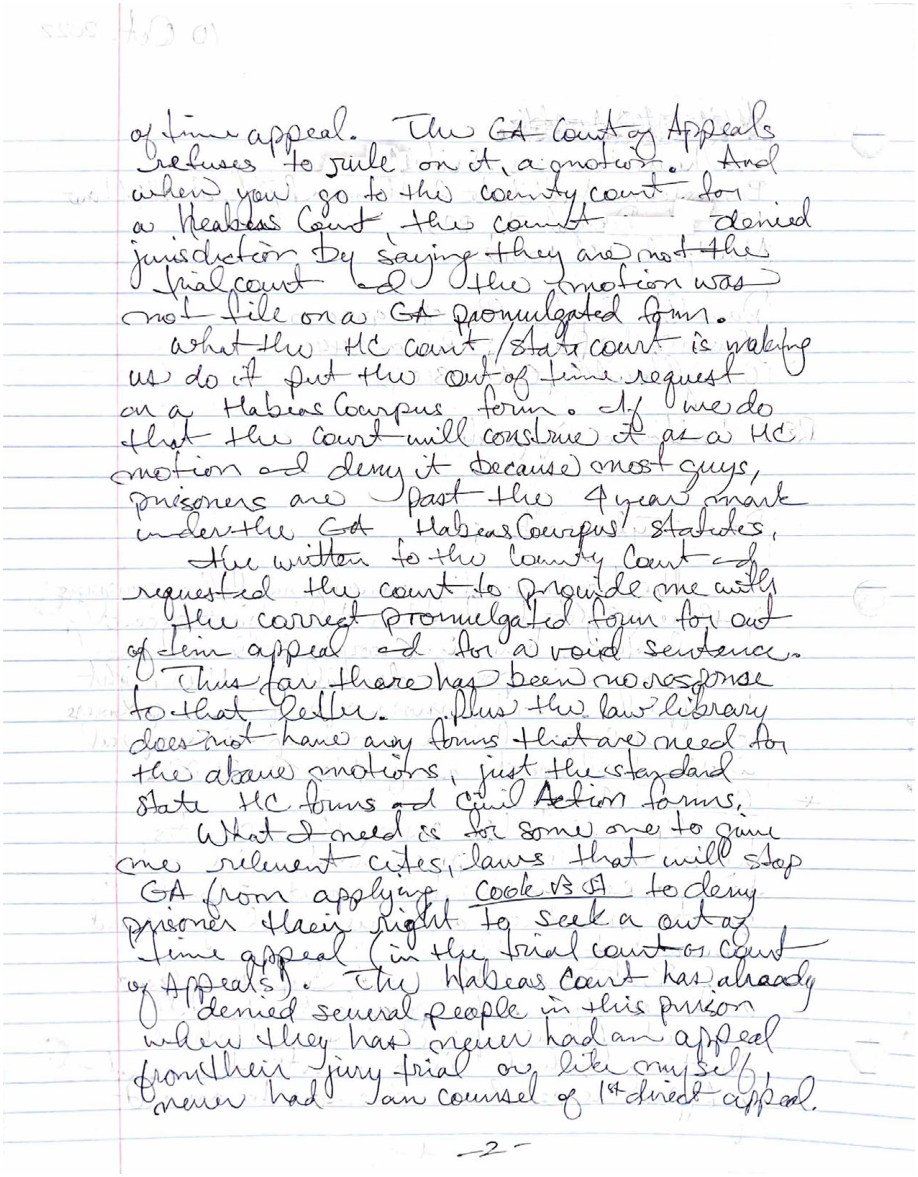 of time appeal. The GA Court of Appeals
refuses to rule on it, a motion. And
when you go to the county court for
a Heabeas Court, the court denied
jurisdiction by saying they are not the
trial court ad the motion was
not file on a GA promulgated form.
What the HC court/state court is making
us do it put the out of time request
on a Habeas Courpus form. If we do
that the court will construe it as a HC
motion ad deny it because most guys,
prisoners are past the 4 year mark
under the GA Habeas Courpus statutes.
I've written to the County Court ad
requested the court to provide me with
the correct promulgated form for out
of tim appeal ad for a void sentence.
Thus far there has been no response
to that letter. Plus the law library
does not have any forms that are need for
the above motions, just the standard
State HC forms ad Civil Action forms.
What I need is for some one to give
me relevent cites, laws that will stop
GA from applying Cook vs St to deny
prisoner their right to seek a out of
time appeal (in the trial court or court
of Appeals). The Habeas Court has already
denied several people in this prison
when they has never had an appeal
from their jury trial or, like my self,
never had an counsel of 1st direct appeal.
-2-